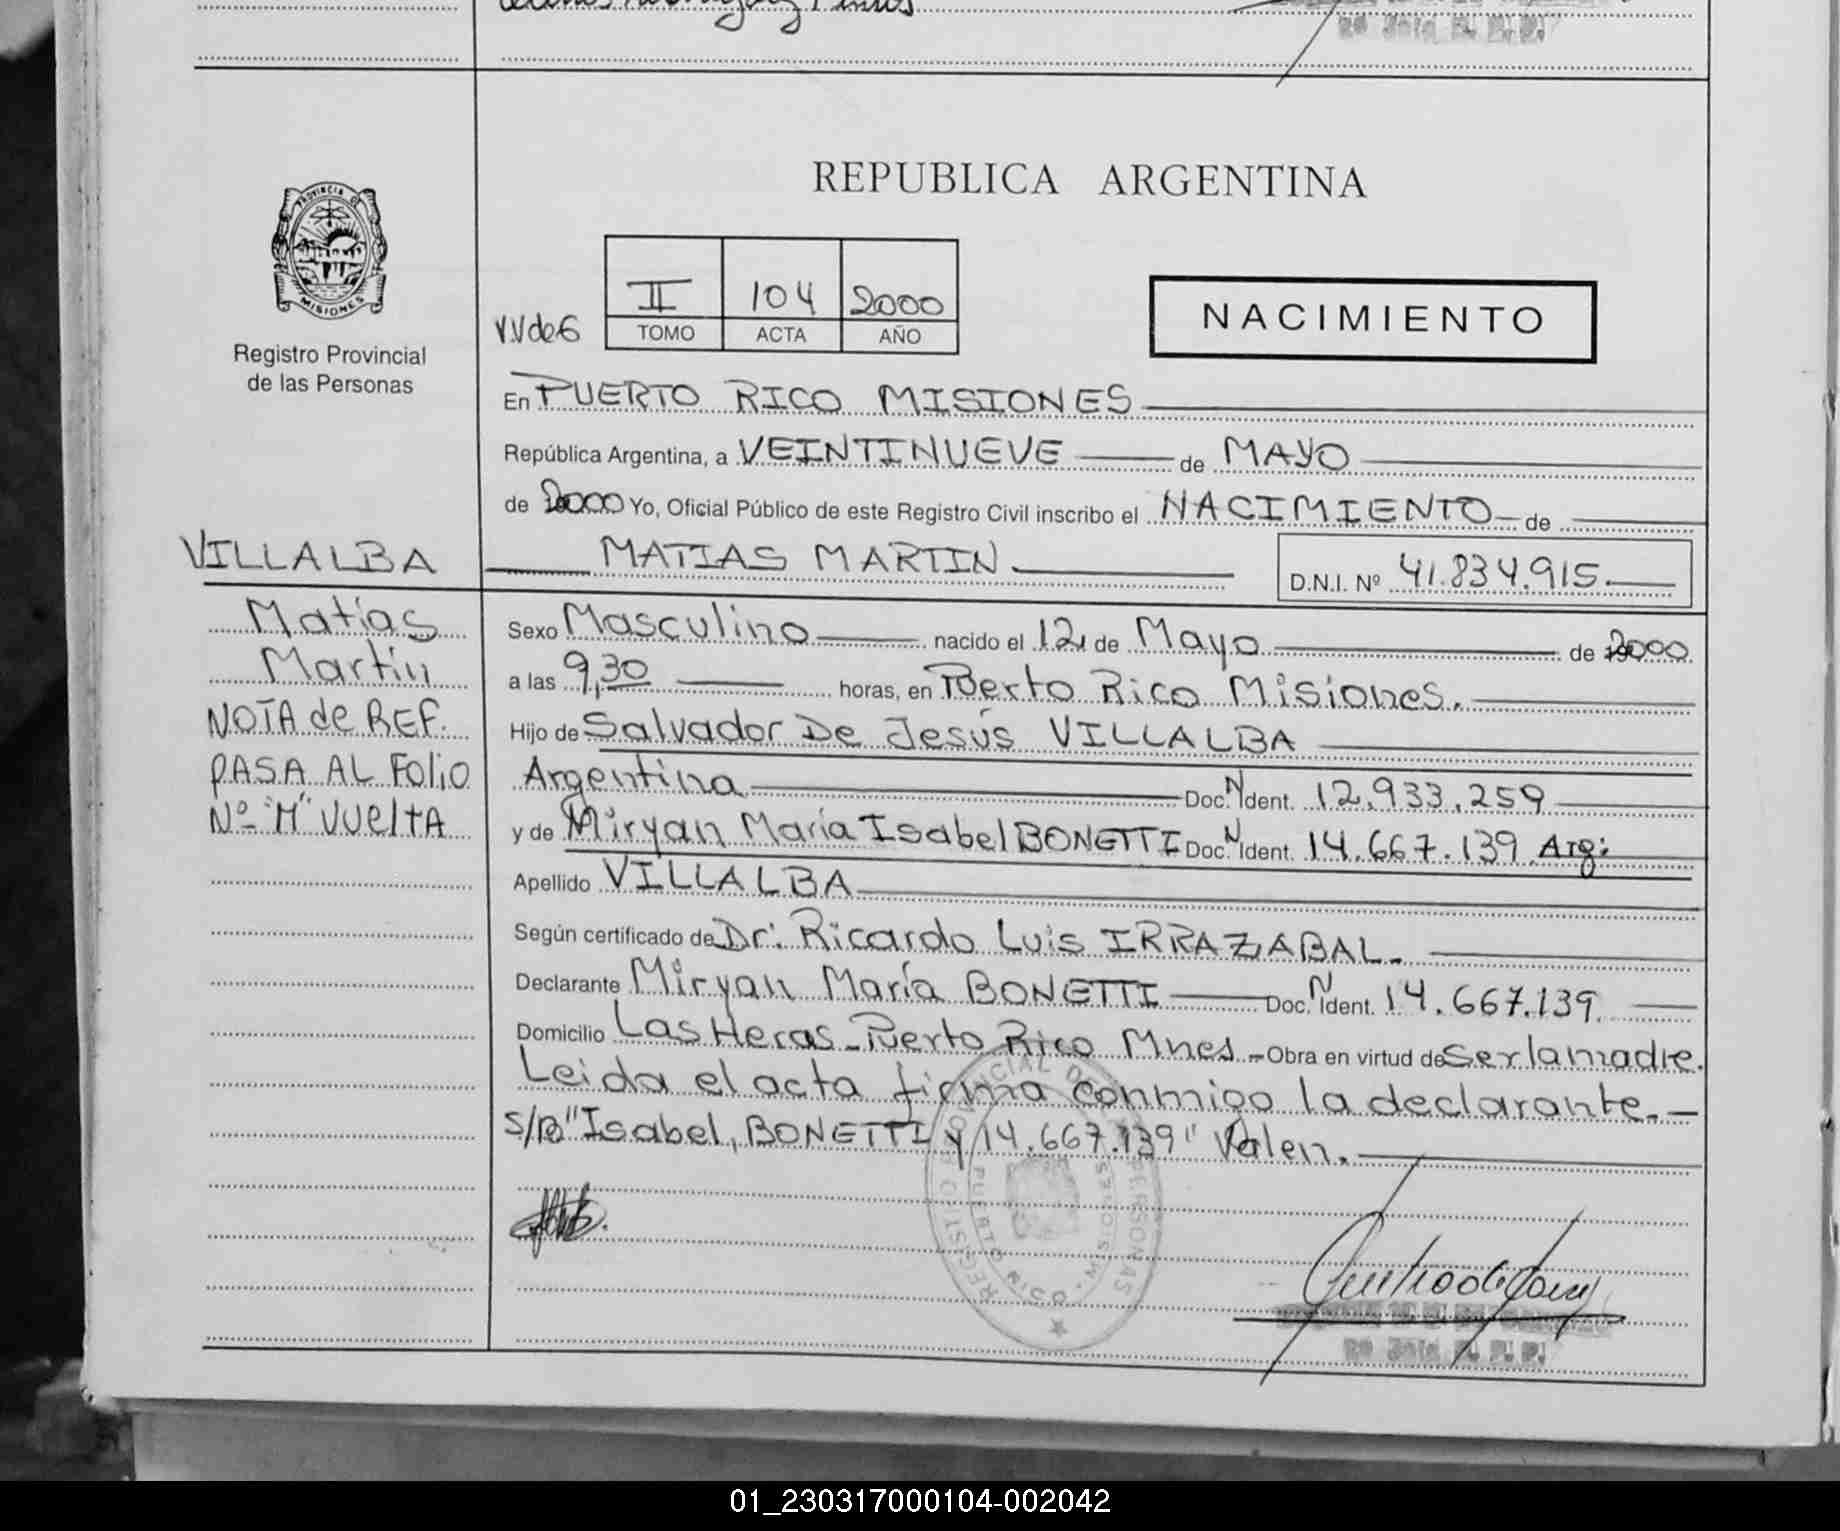 REPUBLICA ARGENTINA
PROVINCIA DE
MISIONES
Registro Provincial
de las Personas
II 104 2000
TOMO ACTA AÑO
NACIMIENTO
En PUERTO RICO MISIONES
República Argentina, a VEINTINUEVE de MAYO
de 2000 Yo, Oficial Público de este Registro Civil inscribo el NACIMIENTO de
MATIAS MARTIN
D.N.I. Nº 41.834.915.
Sexo Masculino nacido el 12 de Mayo de 2000
a las 9,30 horas, en Puerto Rico Misiones.
Hijo de Salvador De Jesús VILLALBA
Argentina Doc. N Ident. 12.933.259
y de Miryan María Isabel BONETTI Doc. N Ident. 14.667.139 Arg:
Apellido VILLALBA
Según certificado de Dr: Ricardo Luis IRRAZABAL.
Declarante Miryan María BONETTI Doc. N Ident. 14.667.139.
Domicilio Las Heras - Puerto Rico Mnes - Obra en virtud de Ser la madre.
Leida el acta firma conmigo la declarante.-
S/B "Isabel, BONETTI y 14.667.139" Valen.
VILLALBA
Matías
Martin
NOTA de REF.
PASA AL FOLIO
Nº "M" VUELTA
REGISTRO PROVINCIAL DE PERSONAS
PUERTO RICO - MISIONES
01_230317000104-002042